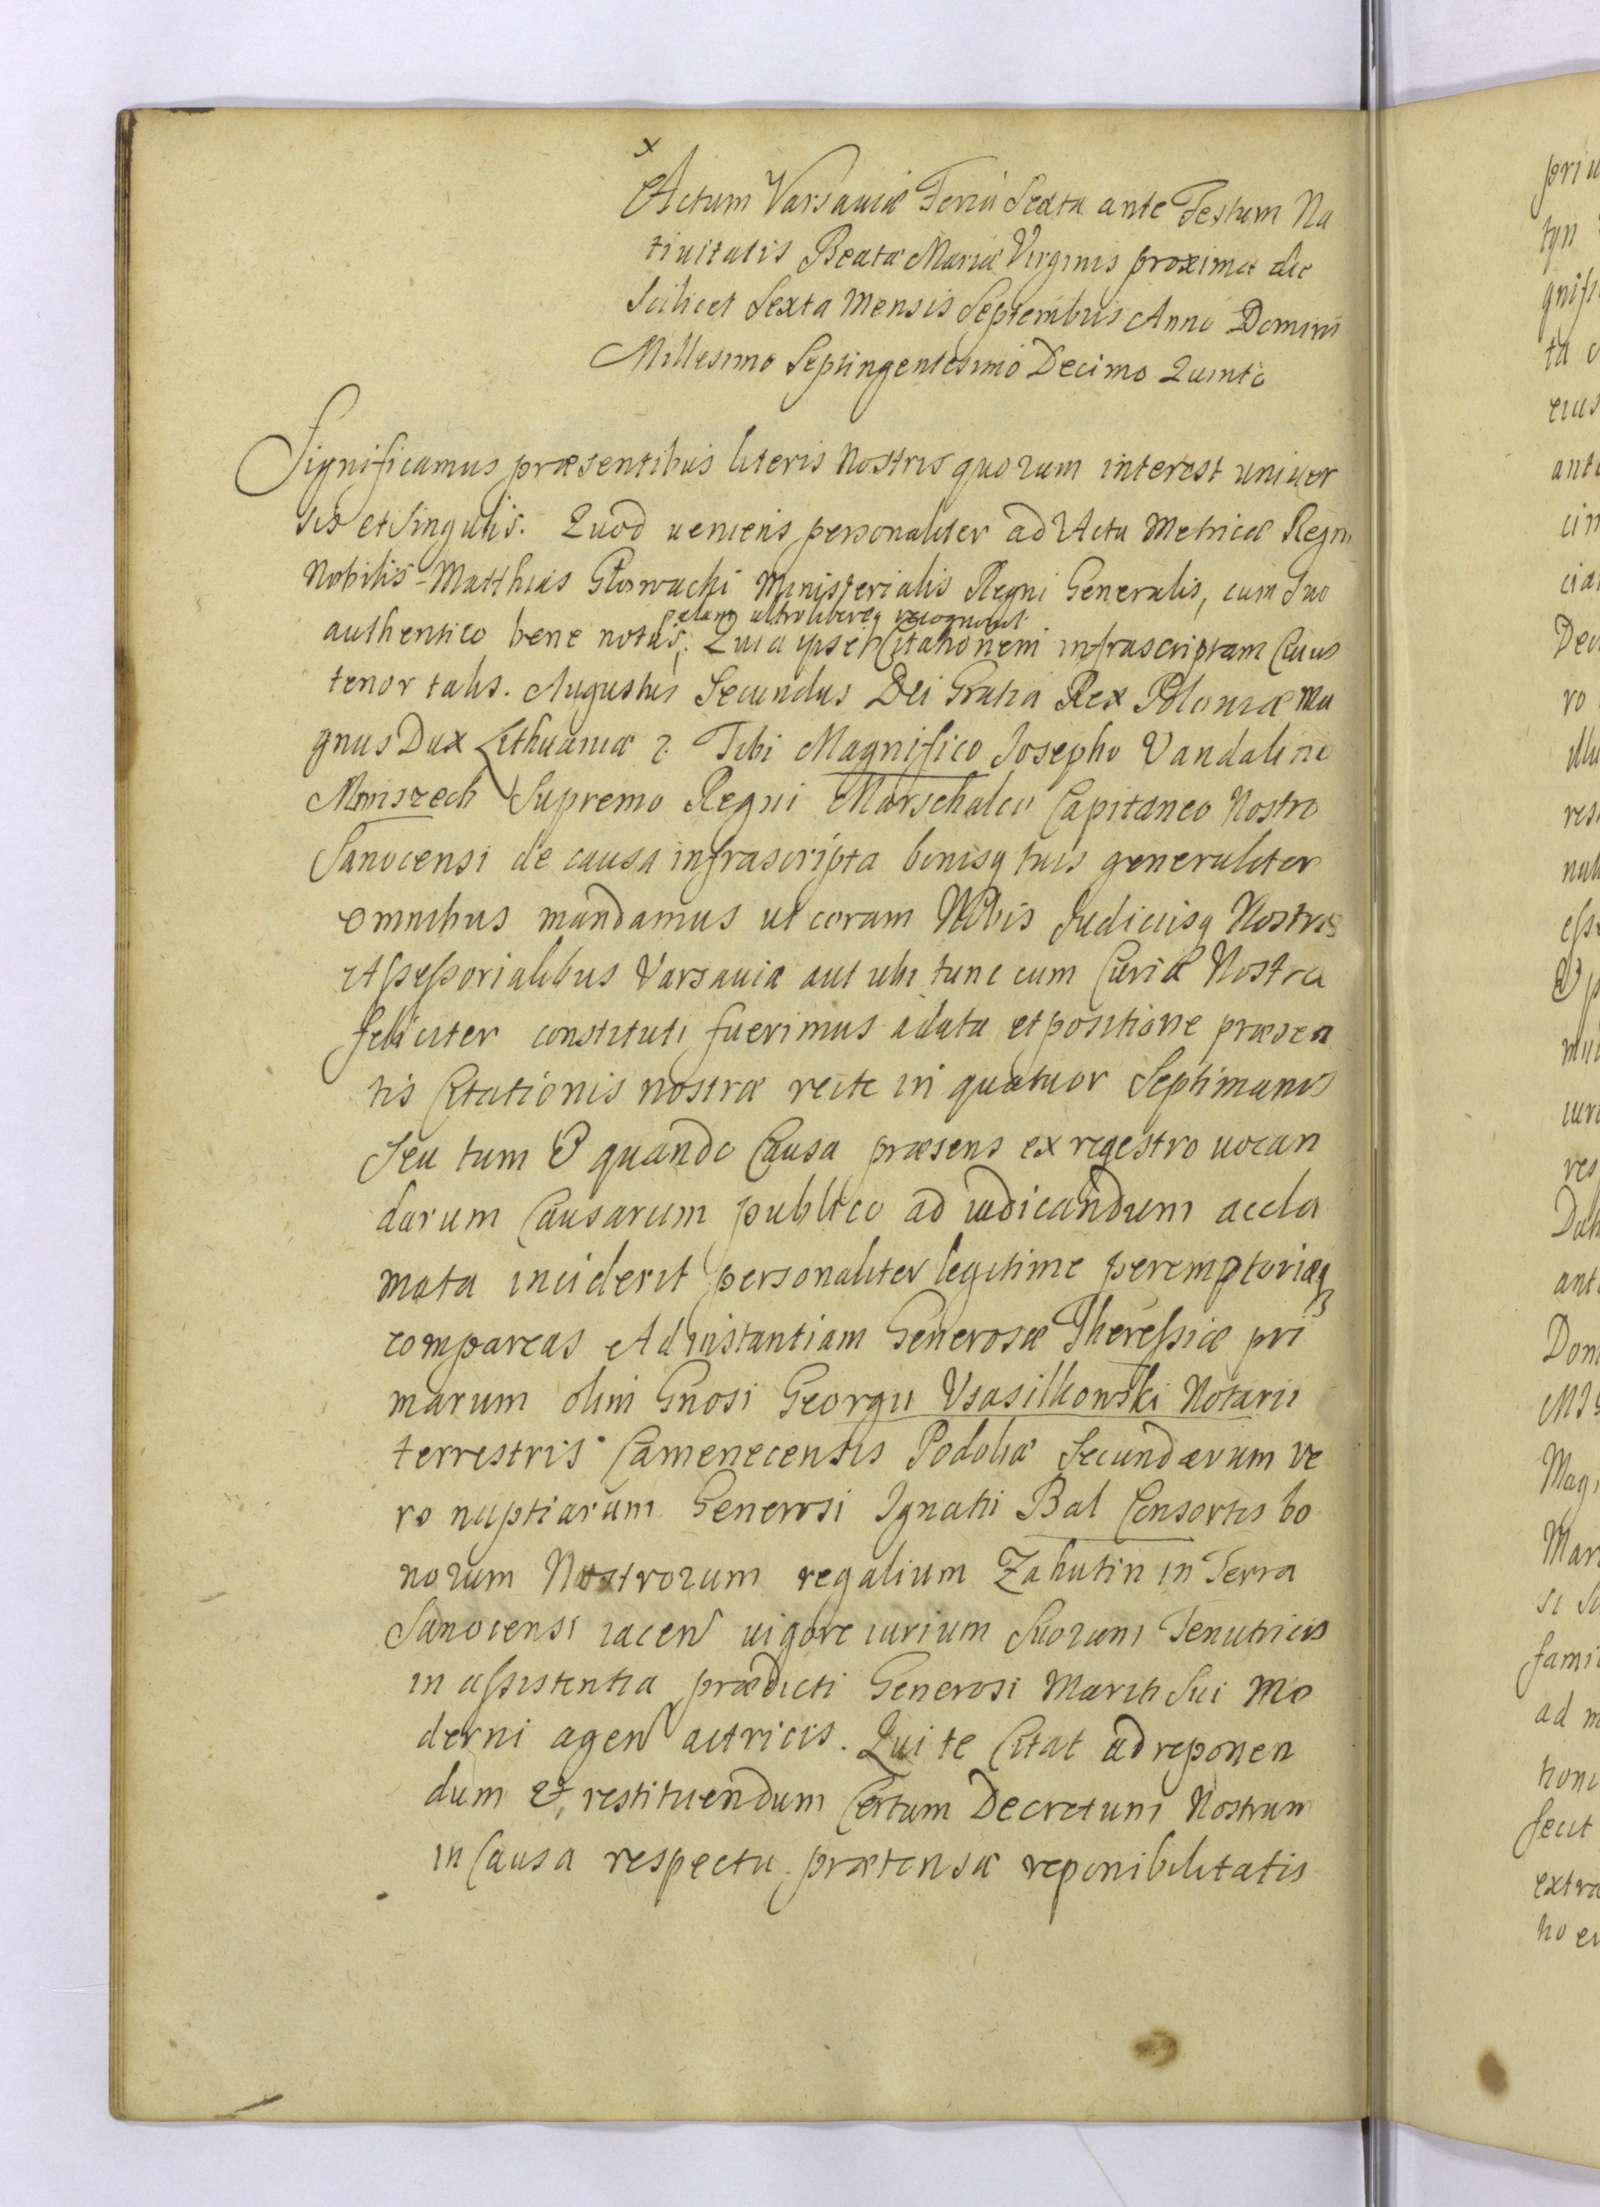 x
Actum Varsaviæ Feria Sexta ante Festum Na
tiuitatis Beatæ Mariæ Virginis proxima die
Scilicet Sexta Mensis Septembris Anno Domini
Millesimo Septingentesimo Decimo Quinto
Significamus præsentibus literis Nostris quorum interest uniuer
sis et Singulis. Quod ueniens personaliter ad Acta Metricæ Regni
Nobilis Matthias Głowacki Ministerialis Regni Generalis, cum Suo
palam ultro libereq recognouit
authentico bene notus, Quia ipse Citationem infrascriptam Cuius
tenor talis. Augustus Secundus Dei Gratia Rex Poloniæ Ma
gnus Dux Lithuaniæ &. Tibi Magnifico Josepho Vandalino
Mniszech Supremo Regni Marschalco Capitaneo Nostro
Sanocensi de causa infrascripta bonisq tuis generaliter
omnibus mandamus ut coram Nobis Judiciisq Nostris
Assessorialibus Varsaviæ aut ubi tunc cum Curia Nostra
feliciter constituti fuerimus a data et positione præsen
tis Citationis nostræ recte in quatuor Septimanis
Seu tum & quando Causa præsens ex regestro uocan
darum Causarum publico ad iudicandum accla
mata inciderit personaliter legitime peremptorieq
compareas Ad instantiam Generosæ Theressiæ pri
marum olim Gnosi Georgii Wasilkowski Notarii
terrestris Camenecensis Podoliæ Secundarum ve
ro nuptiarum Generosi Ignatii Bal Consortis bo
norum Nostrorum regalium Zahutin in Terra
Sanocensi iacen uigore iurium Suorum Tenutricis
in assistentia prædicti Generosi Mariti Sui Mo
derni agen actricis. Qui te Citat ad reponen
dum & restituendum Certum Decretum Nostrum
in Causa respectu prætensæ reponibilitatis
priu
tyn
gnifi
ta c
eius
ante
cim
cia
Dec
ro
illu
res
nul
esse
& p
mi
iuri
res
Dat
ant
Dom
Mag
Mar
si Su
fami
ad m
tion
fecit
extra
no e